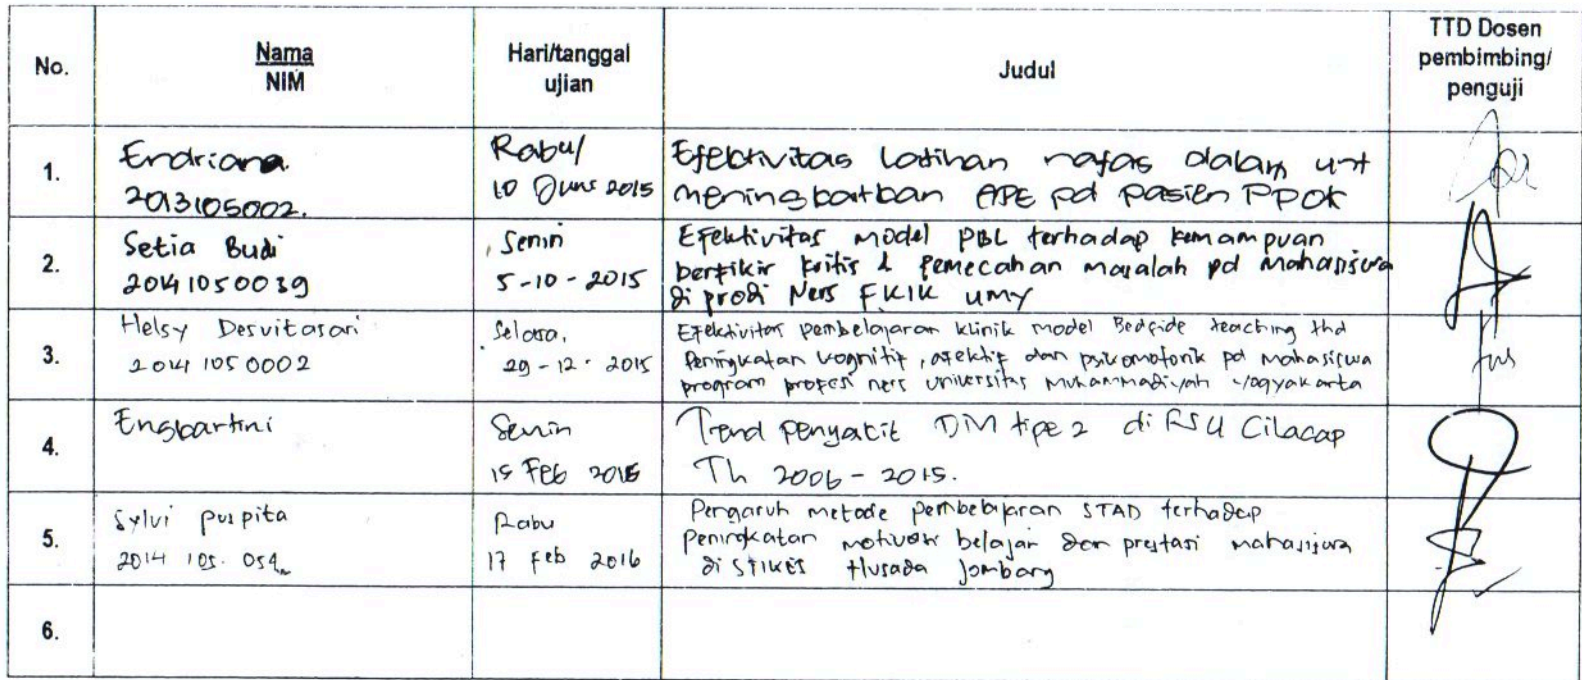 No.
Nama
NIM
Hari/tanggal
ujian
Judul
TTD Dosen
pembimbing/
penguji
1.
Endriana.
2013105002.
Rabu/
10 Juni 2015
Efektivitas latihan nafas dalam unt
meningkatkan APE pd pasien PPOK
2.
Setia Budi
20141050039
Senin
5-10-2015
Efektivitas model PBL terhadap kemampuan
berfikir kritis & pemecahan masalah pd mahasiswa
di prodi Ners FKIK UMY
3.
Helsy Desvitasari
20141050002
Selasa,
29-12-2015
Efektivitas pembelajaran klinik model Bedside teaching thd
Peningkatan kognitif, afektif dan psikomotorik pd mahasiswa
program profesi ners universitas Muhammadiyah Yogyakarta
4.
Engkartini
Senin
15 Feb
Trend penyakit DM tipe 2 di RSU Cilacap
Th 2006-2015.
5.
Sylvi puspita
2014 105.
Rabu
17 Feb 2016
Pengaruh metode pembelajaran STAD terhadap
Peningkatan motivasi belajar dan prestasi mahasiswa
di STIKES Husada Jombang
6.